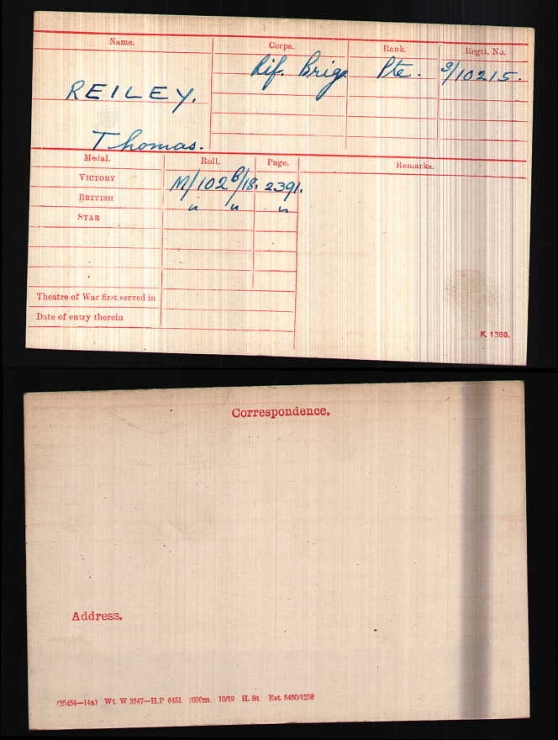 Name. Corps. Rank. Regtl. No.
Rif. Brig. Pte. S/10215.
REILEY.
Thomas.
Medal. Roll. Page. Remarks.
VICTORY M/102B/18. 2391.
BRITISH " " "
STAR
Theatre of War first served in
Date of entry therein
K. 1380.
Correspondence.
Address.
Wt. W 5347—H.P 6451 10/19 H. St.